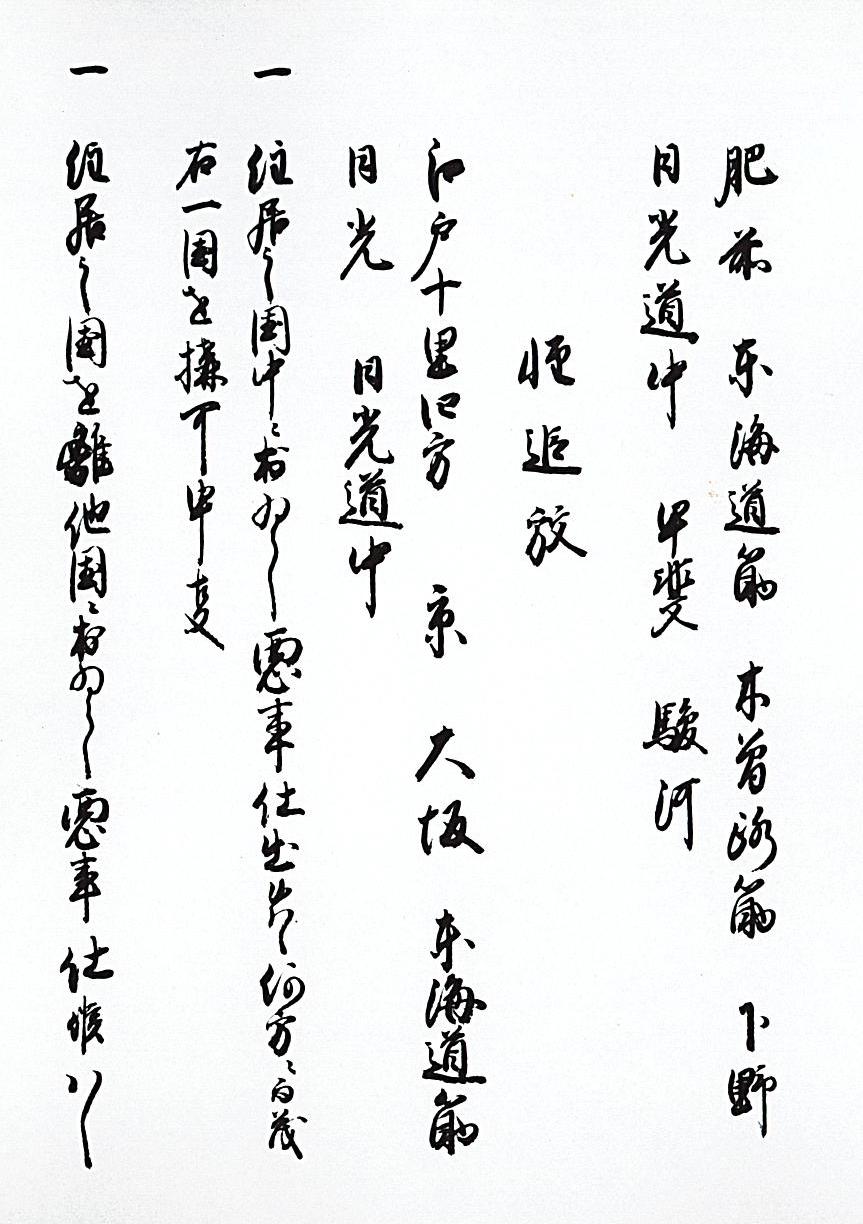 肥前　東海道筋　木曽路筋　下野
日光道中　甲斐　駿河
軽追放
江戸十里四方　京　大坂　東海道筋
日光　日光道中
一　住居之国中ニおゐて悪事仕出候ハヽ何方ニ而茂
右一国を搆可申事
一　住居之国を離他国ニおゐて悪事仕候ハヽ